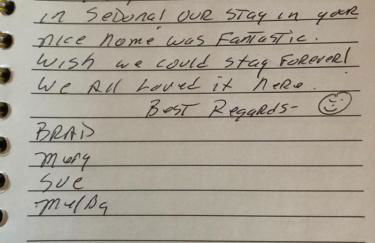 in Sedona! Our stay in your
nice home was Fantastic.
Wish we could stay Forever!
We All Loved it here.
Best Regards-
BRAD
Mary
Sue